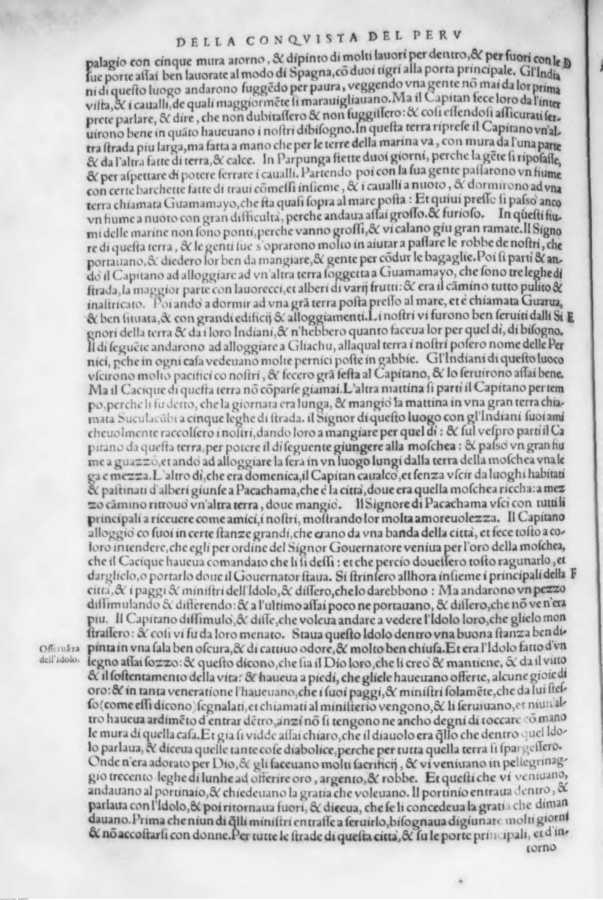 DELLA CONQVISTA DEL PERV
palagio con cinque mura atorno, & dipinto di molti lauori per dentro, & per fuori con le D
sue porte assai ben lauorate al modo di Spagna, cō duoi tigri alla porta principale. Gl'India
ni di questo luogo andarono fuggēdo per paura, veggendo vna gente nō mai da lor prima
vista, & i caualli, de quali maggiormēte si marauigliauano. Ma il Capitan fece loro da l'inter
prete parlare, & dire, che non dubitassero & non fuggissero: & cosi essendosi assicurati ser-
uirono bene in quāto haueuano i nostri dibisogno. In questa terra riprese il Capitano vn'al-
tra strada piu larga, ma fatta a mano che per le terre della marina va, con mura da l'una parte
& da l'altra fatte di terra, & calce. In Parpunga stette duoi giorni, perche la gēte si riposasse,
& per aspettare di potere ferrare i caualli. Partendo poi con la sua gente passarono vn fiume
con certe barchette fatte di traui cōmessi insieme, & i caualli a nuoto, & dormirono ad vna
terra chiamata Guamamayo, che sta quasi sopra al mare posta: Et quiui presso si passò anco
vn fiume a nuoto con gran difficultà, perche andaua assai grosso, & furioso. In questi fiu-
mi delle marine non sono ponti, perche vanno grossi, & vi calano giu gran ramate. Il Signo
re di questa terra, & le genti sue s'oprarono molto in aiutar a passare le robbe de nostri, che
portauano, & diedero lor ben da mangiare, & gente per cōdur le bagaglie. Poi si parti & an-
dò il Capitano ad alloggiare ad vn'altra terra soggetta a Guamamayo, che sono tre leghe di
strada, la maggior parte con lauorecci, et alberi di varij frutti: & era il cāmino tutto pulito &
inastricato. Poi andò a dormir ad vna grā terra posta presso al mare, et è chiamata Guarua,
& ben situata, & con grandi edificij & alloggiamenti. Li nostri vi furono ben seruiti dalli Si E
gnori della terra & da i loro Indiani, & n'hebbero quanto faceua lor per quel dì, di bisogno.
Il dì seguēte andarono ad alloggiare a Gliachu, allaqual terra i nostri posero nome delle Per
nici, pche in ogni casa vedeuano molte pernici poste in gabbie. Gl'Indiani di questo luoco
vscirono molto pacifici co nostri, & fecero grā festa al Capitano, & lo seruirono assai bene.
Ma il Cacique di questa terra nō cōparse giamai. L'altra mattina si parti il Capitano per tem
po, perche li fu detto, che la giornata era lunga, & mangiò la mattina in vna gran terra chia-
mata Suculacūbi a cinque leghe di strada. il Signor di questo luogo con gl'Indiani suoi ami
cheuolmente raccolsero i nostri, dando loro a mangiare per quel dì: & sul vespro parti il Ca
pitano da questa terra, per potere il dì seguente giungere alla moschea: & passò vn gran fiu
me a guazzo, et andò ad alloggiare la sera in vn luogo lungi dalla terra della moschea vna le
ga e mezza. L'altro dì, che era domenica, il Capitan caualcò, et senza vscir da luoghi habitati
& pastinati d'alberi giunse a Pacachama, che è la città, doue era quella moschea riccha: a mez
zo cāmino ritrouò vn'altra terra, doue mangiò. Il Signore di Pacachama vscì con tutti li
principali a riceuere come amici, i nostri, mostrando lor molta amoreuolezza. Il Capitano
alloggiò co suoi in certe stanze grandi, che erano da vna banda della città, et fece tosto a co-
loro intendere, che egli per ordine del Signor Gouernatore veniua per l'oro della moschea,
che il Cacique haueua comandato che li si dessi: et che perciò douessero tosto ragunarlo, et
darglielo, o portarlo doue il Gouernator staua. Si strinsero allhora insieme i principali della F
città, & i paggi & ministri dell'Idolo, & dissero, che lo darebbono: Ma andarono vn pezzo
dissimulando & differendo: & a l'ultimo assai poco ne portauano, & dissero, che nō ve n'era
piu. Il Capitano dissimulò, & disse, che voleua andare a vedere l'Idolo loro, che glielo mon
strassero: & cosi vi fu da loro menato. Staua questo Idolo dentro vna buona stanza ben di-
Offeruāza pinta in vna sala ben oscura, & di cattiuo odore, & molto ben chiusa. Et era l'Idolo fatto d'vn
dell'idolo. legno assai sozzo: & questo dicono, che sia il Dio loro, che li creò & mantiene, & da il vitto
& il sostentamento della vita: & haueua a piedi, che gliele haueuano offerte, alcune gioie di
oro: & in tanta veneratione l'haueuano, che i suoi paggi, & ministri solamēte, che da lui stes-
so (come essi dicono) segnalati, et chiamati al ministerio vengono, & li seruiuano, et niun'al-
tro haueua ardimēto d'entrar dētro, anzi nō si tengono ne ancho degni di toccare cō mano
le mura di quella casa. Et già si vidde assai chiaro, che il diauolo era qllo che dentro quel Ido-
lo parlaua, & diceua quelle tante cose diabolice, perche per tutta quella terra si spargessero.
Onde n'era adorato per Dio, & gli faceuano molti sacrificij, & vi veniuano in pellegrinag-
gio trecento leghe di lunhe ad offerire oro, argento, & robbe. Et questi che vi veniuano,
andauano al portinaio, & chiedeuano la gratia che voleuano. Il portinio entraua dentro, &
parlaua con l'Idolo, & poi ritornaua fuori, & diceua, che se li concedeua la gratia che diman
dauano. Prima che niun di qlli ministri entrasse a seruirlo, bisognaua digiunare molti giorni
& nō accostarsi con donne. Per tutte le strade di questa città, & su le porte principali, et d'in-
torno